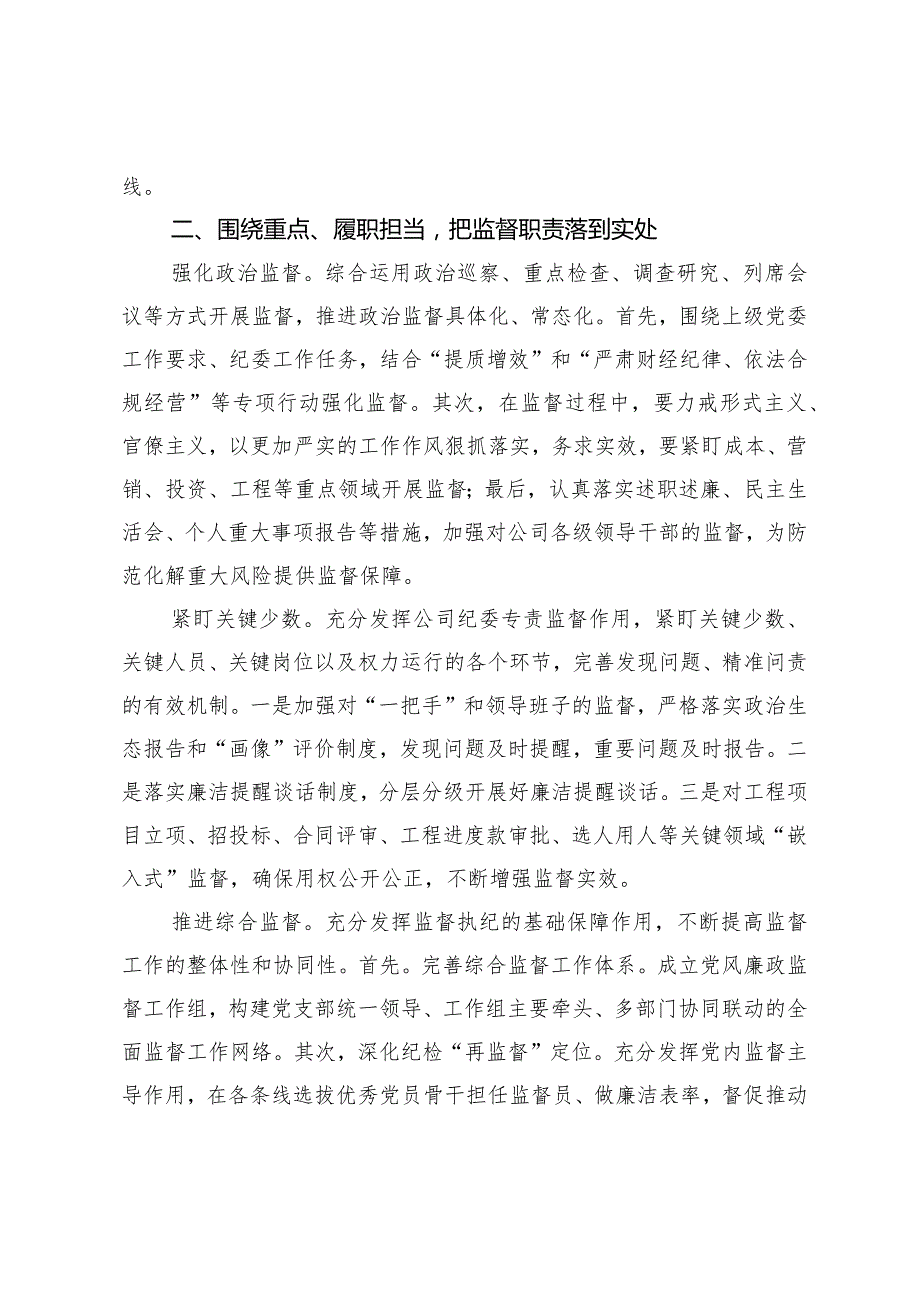 线。
二、围绕重点、履职担当，把监督职责落到实处
强化政治监督。综合运用政治巡察、重点检查、调查研究、列席会
议等方式开展监督，推进政治监督具体化、常态化。首先，围绕上级党委
工作要求、纪委工作任务，结合“提质增效”和“严肃财经纪律、依法合
规经营”等专项行动强化监督。其次，在监督过程中，要力戒形式主义、
官僚主义，以更加严实的工作作风狠抓落实，务求实效，要紧盯成本、营
销、投资、工程等重点领域开展监督；最后，认真落实述职述廉、民主生
活会、个人重大事项报告等措施，加强对公司各级领导干部的监督，为防
范化解重大风险提供监督保障。
紧盯关键少数。充分发挥公司纪委专责监督作用，紧盯关键少数、
关键人员、关键岗位以及权力运行的各个环节，完善发现问题、精准问责
的有效机制。一是加强对“一把手”和领导班子的监督，严格落实政治生
态报告和“画像”评价制度，发现问题及时提醒，重要问题及时报告。二
是落实廉洁提醒谈话制度，分层分级开展好廉洁提醒谈话。三是对工程项
目立项、招投标、合同评审、工程进度款审批、选人用人等关键领域“嵌
入式”监督，确保用权公开公正，不断增强监督实效。
推进综合监督。充分发挥监督执纪的基础保障作用，不断提高监督
工作的整体性和协同性。首先。完善综合监督工作体系。成立党风廉政监
督工作组，构建党支部统一领导、工作组主要牵头、多部门协同联动的全
面监督工作网络。其次，深化纪检“再监督”定位。充分发挥党内监督主
导作用，在各条线选拔优秀党员骨干担任监督员、做廉洁表率，督促推动